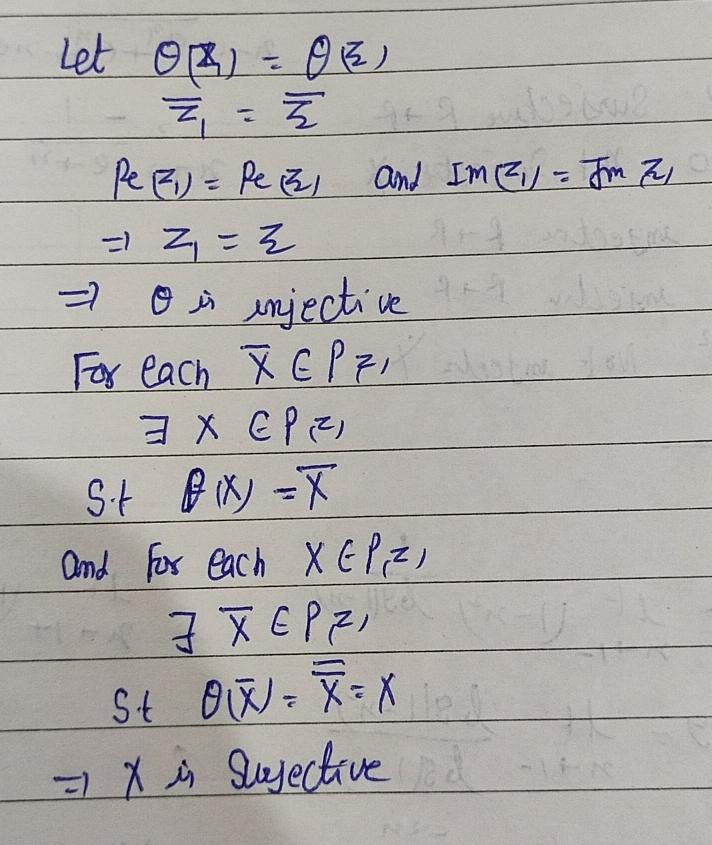 Let θ(z₁) = θ(z₂)
z̅₁ = z̅₂
Re(z₁) = Re(z₂) and Im(z₁) = Im z₂
⇒ z₁ = z₂
⇒ θ is injective
For each X̅ ∈ P(z)
∃ X ∈ P(z)
S.t θ(X) = X̅
and for each X ∈ P(z)
∃ X̅ ∈ P(z)
St θ(X̅) = X̿ = X
⇒ X is Surjective